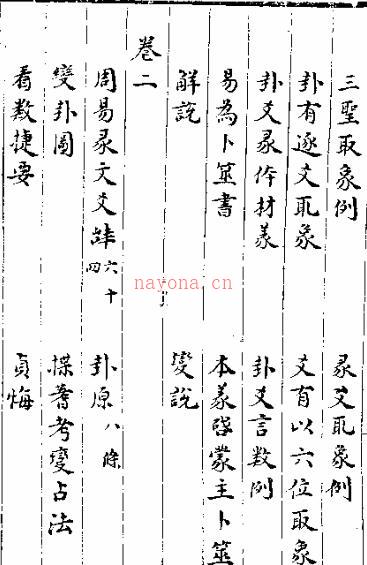 三聖取象例
彖爻取象例
卦有逐爻取象
爻有以六位取象
卦爻彖体材義
卦爻言數例
易為卜筮書
本義啓蒙主卜筮
解說
變說
卷二
周易彖文爻辭 六十四
卦原 八條
變卦圖
揲蓍考變占法
看數捷要
貞悔
nayona.cn